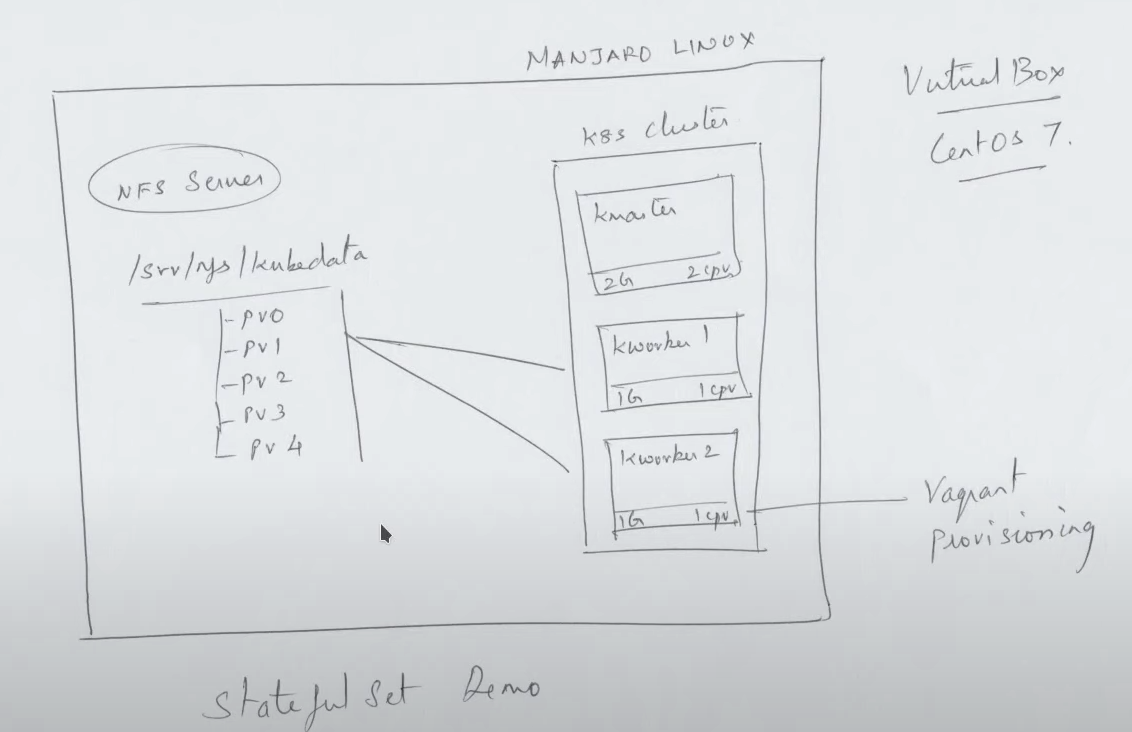 MANJARO LINUX
Virtual Box
CentOS 7.
NFS Server
/srv/nfs/kubedata
pv0
pv1
pv2
pv3
pv4
k8s cluster
kmaster
2G 2cpu
kworker 1
1G 1cpu
kworker 2
1G 1cpu
Vagrant
Provisioning
Stateful Set Demo